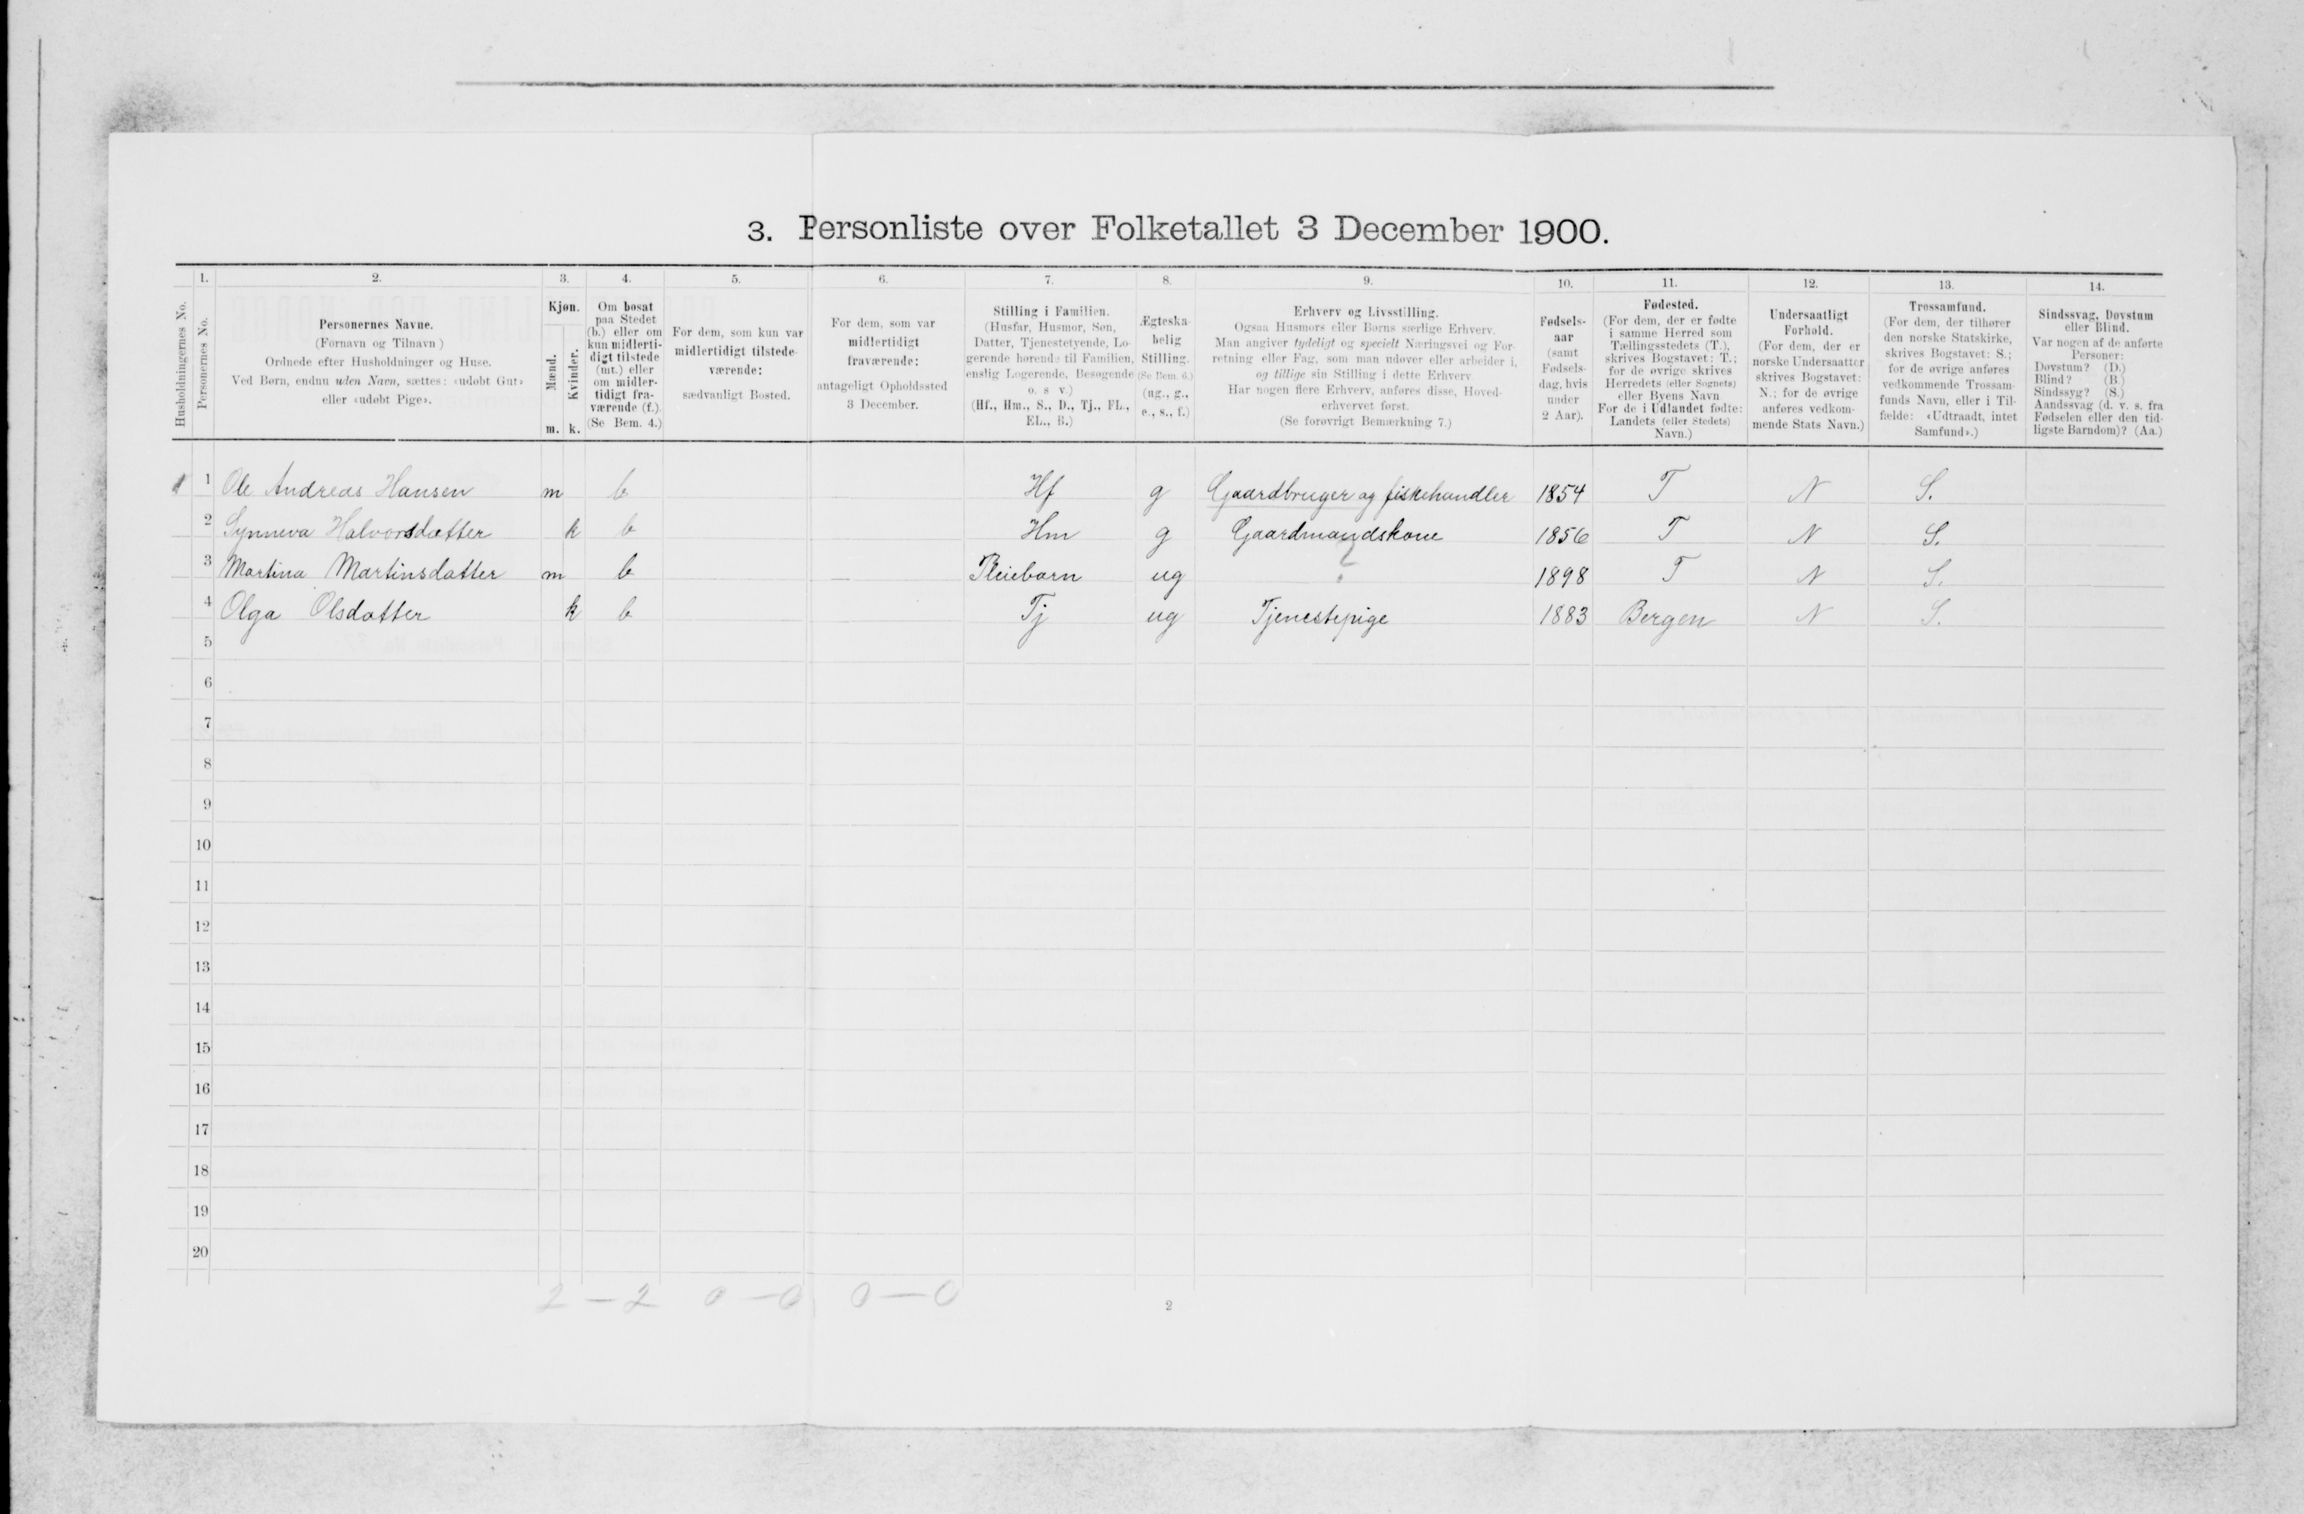 3. Personliste over Folketallet 3 December 1900.
1. 2. 3. 4. 5. 6. 7. 8. 9. 10. 11. 12. 13. 14.
Husholdningernes No.
Personernes No.
Personernes Navne.
(Fornavn og Tilnavn)
Ordnede efter Husholdninger og Huse.
Ved Børn, endnu uden Navn, sættes: «udøbt Gut»
eller «udøbt Pige».
Kjøn.
Mænd.
Kvinder.
m. k.
Om bosat
paa Stedet
(b.) eller om
kun midlerti-
digt tilstede
(mt.) eller
om midler-
tidigt fra-
værende (f.).
(Se Bem. 4.)
For dem, som kun var
midlertidigt tilstede-
værende:
sædvanligt Bosted.
For dem, som var
midlertidigt
fraværende:
antageligt Opholdssted
3 December.
Stilling i Familien.
(Husfar, Husmor, Søn,
Datter, Tjenestetyende, Lo-
gerende hørende til Familien,
enslig Logerende, Besøgende
o. s. v.)
(Hf., Hm., S., D., Tj., FL.,
EL., B.)
Ægteska-
belig
Stilling.
(Se Bem. 6.)
(ug., g.,
e., s., f.)
Erhverv og Livsstilling.
Ogsaa Husmors eller Børns særlige Erhverv.
Man angiver tydeligt og specielt Næringsvei og For-
retning eller Fag, som man udøver eller arbeider i,
og tillige sin Stilling i dette Erhverv.
Har nogen flere Erhverv, anføres disse, Hoved-
erhvervet først.
(Se forøvrigt Bemærkning 7.)
Fødsels-
aar
(samt
Fødsels-
dag, hvis
under
2 Aar).
Fødested.
(For dem, der er fødte
i samme Herred som
Tællingsstedets (T.),
skrives Bogstavet: T.;
for de øvrige skrives
Herredets (eller Sognets)
eller Byens Navn
For de i Udlandet fødte:
Landets (eller Stedets)
Navn.)
Undersaatligt
Forhold.
(For dem, der er
norske Undersaatter
skrives Bogstavet:
N.; for de øvrige
anføres vedkom-
mende Stats Navn.)
Trossamfund.
(For dem, der tilhører
den norske Statskirke,
skrives Bogstavet: S.;
for de øvrige anføres
vedkommende Trossam-
funds Navn, eller i Til-
fælde: «Udtraadt, intet
Samfund».)
Sindssvag, Døvstum
eller Blind.
Var nogen af de anførte
Personer:
Døvstum? (D.)
Blind? (B.)
Sindssyg? (S.)
Aandssvag (d. v. s. fra
Fødselen eller den tid-
ligste Barndom)? (Aa.)
1 1 Ole Andreas Hansen m b Hf g Gaardbruger og fiskehandler 1854 T N S.
2 Synneva Halvorsdatter k b Hm g Gaardmandskone 1856 T N S.
3 Martina Martinsdatter m b Pleiebarn ug ? 1898 T N S.
4 Olga Olsdatter k b Tj ug Tjenestepige 1883 Bergen N S.
5
6
7
8
9
10
11
12
13
14
15
16
17
18
19
20
2 — 2 0 — 0 0 — 0
2